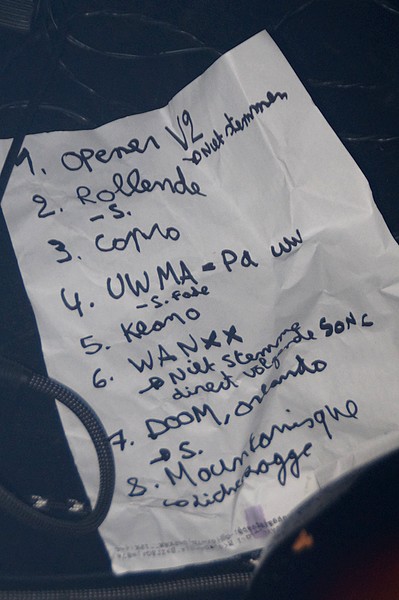 1. OPENER V2
→ Niet stemmen
2. ROLLENDE
- S.
3. COPMO
4. UWMA = Pa UW
- S. Fade
5. Keano
6. WANXX
→ Niet stemmen
direct volgende SONG
7. DOOM, Orlando
→ S.
8. Mountonisque